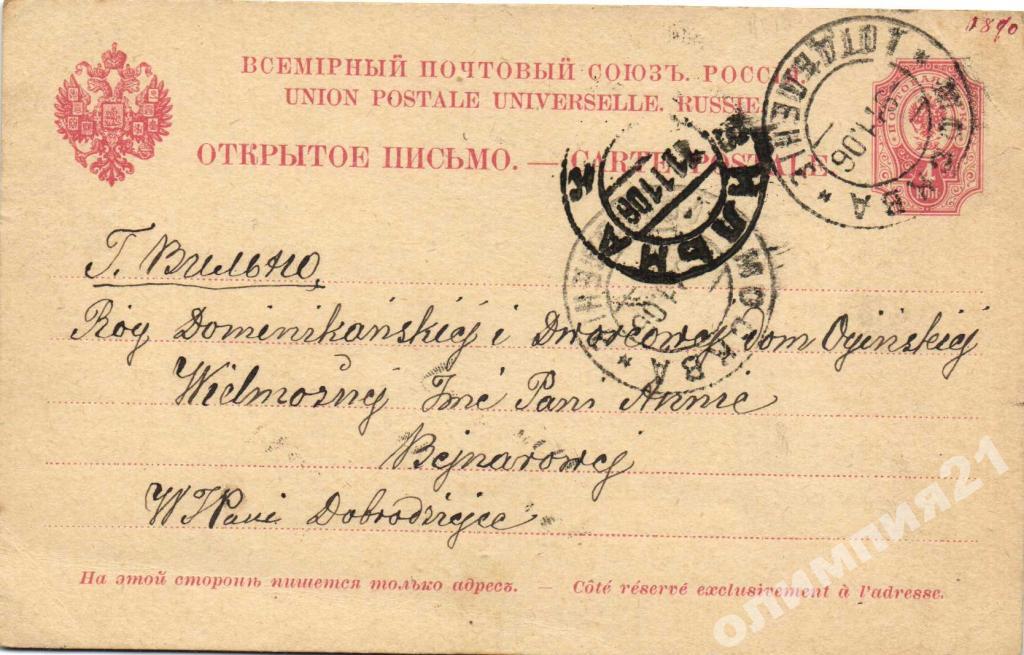 1890
ВСЕМІРНЫЙ ПОЧТОВЫЙ СОЮЗЪ. РОССІЯ
UNION POSTALE UNIVERSELLE. RUSSIE
ОТКРЫТОЕ ПИСЬМО. — CARTE POSTALE
КОП
МОСКВА
ВИЛЬНА
11 11 06
МОСКВА
Г. Вильно
Róg Dominikańskiej i Dworcowej dom Ogińskiej
Wielmożnej Jmć Pani Annie
Bejnarowej
W JPani Dobrodziejce
На этой сторонѣ пишется только адресъ. — Côté réservé exclusivement à l'adresse.
олимпия21